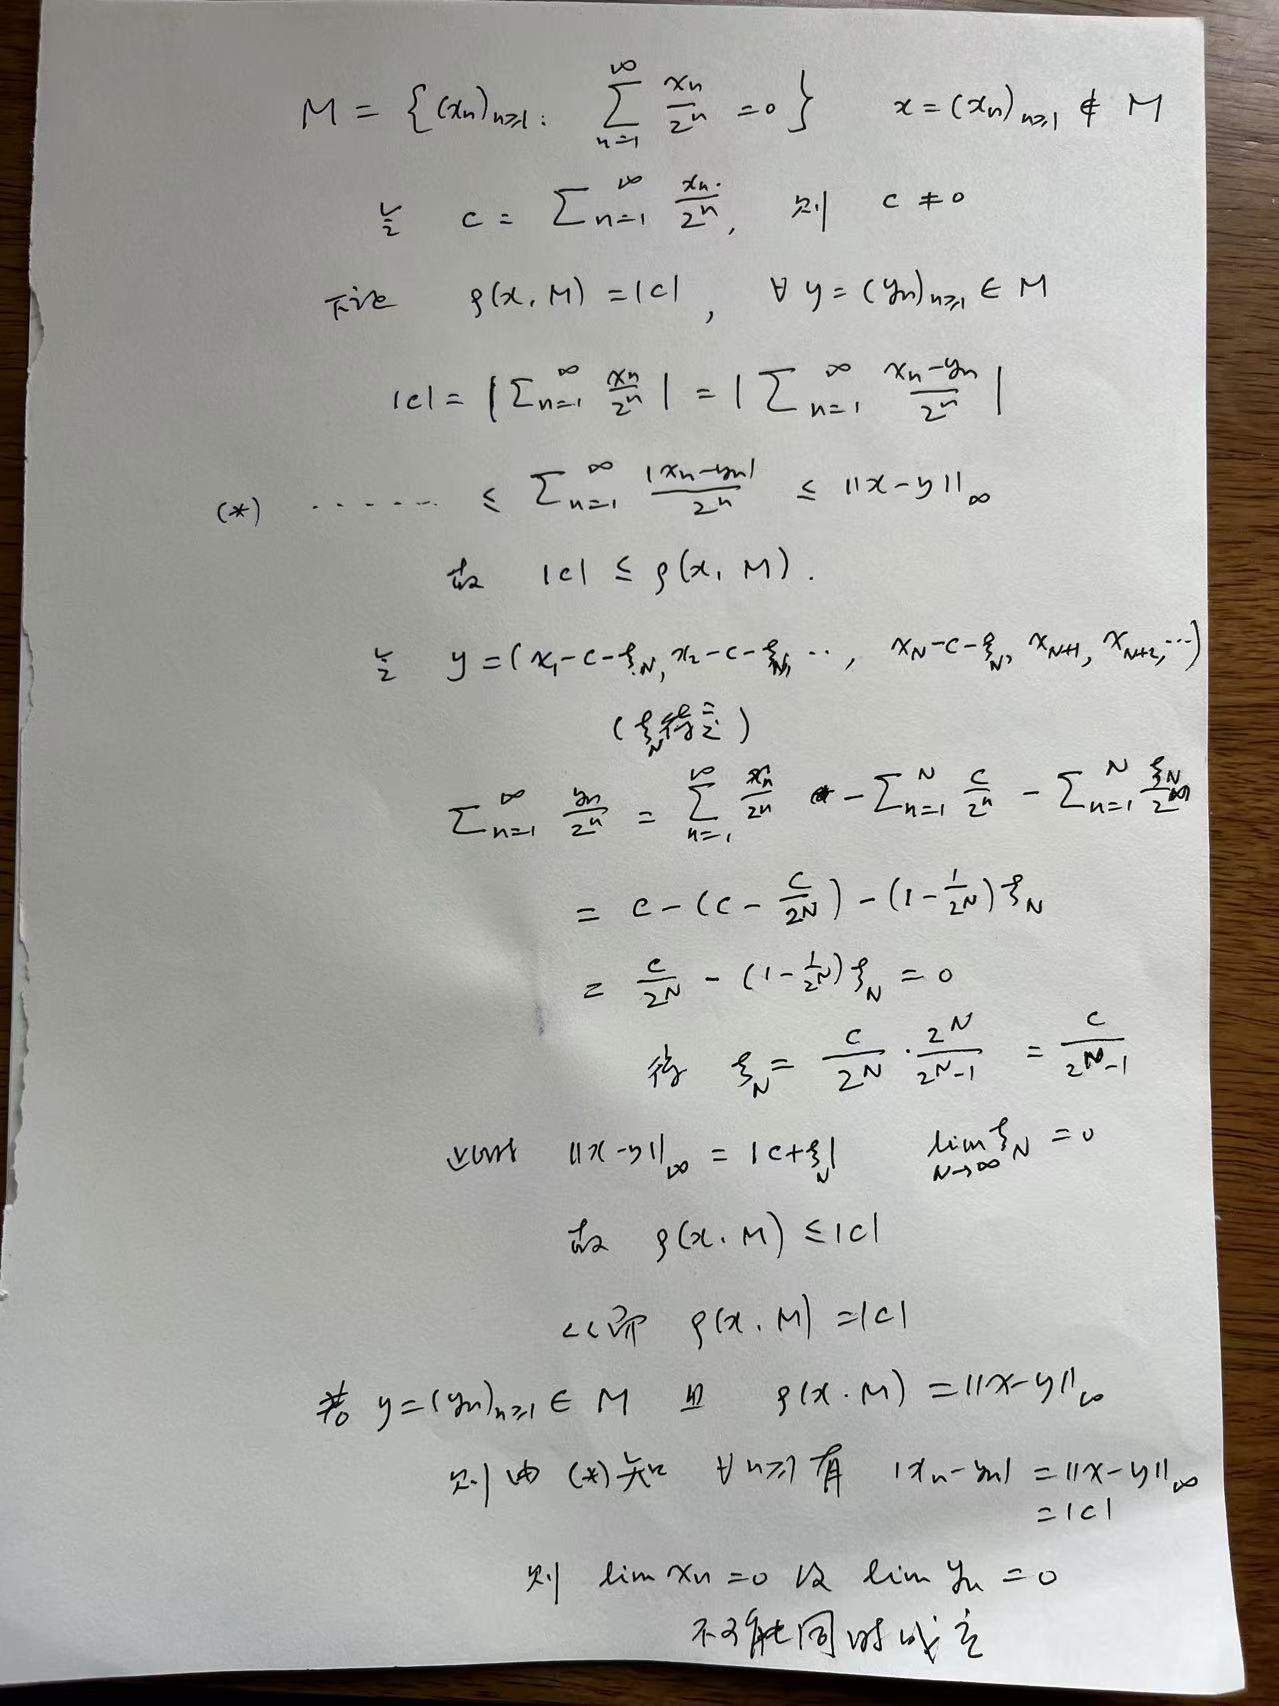 M = {(xₙ)ₙ≥₁: ∑_{n=1}^{∞} xₙ/2ⁿ = 0} x = (xₙ)ₙ≥₁ ∉ M
令 c = ∑_{n=1}^{∞} xₙ/2ⁿ, 则 c ≠ 0
下证 ρ(x, M) = |c|, ∀ y = (yₙ)ₙ≥₁ ∈ M
|c| = |∑_{n=1}^{∞} xₙ/2ⁿ| = |∑_{n=1}^{∞} (xₙ-yₙ)/2ⁿ|
(*) ........ ≤ ∑_{n=1}^{∞} |xₙ-yₙ|/2ⁿ ≤ ||x-y||_∞
故 |c| ≤ ρ(x, M).
令 y = (x₁-c-ξ_N, x₂-c-ξ_N, ..., x_N-c-ξ_N, x_{N+1}, x_{N+2}, ...)
(ξ_N待定)
∑_{n=1}^{∞} yₙ/2ⁿ = ∑_{n=1}^{∞} xₙ/2ⁿ - ∑_{n=1}^{N} c/2ⁿ - ∑_{n=1}^{N} ξ_N/2ⁿ
= c - (c - c/2^N) - (1 - 1/2^N) ξ_N
= c/2^N - (1 - 1/2^N) ξ_N = 0
得 ξ_N = c/2^N · 2^N/(2^N-1) = c/(2^N-1)
此时 ||x-y||_∞ = |c+ξ_N| lim_{N→∞} ξ_N = 0
故 ρ(x, M) ≤ |c|
从而 ρ(x, M) = |c|
若 y = (yₙ)ₙ≥₁ ∈ M 且 ρ(x, M) = ||x-y||_∞
则由 (*) 知 ∀ n≥1 有 |xₙ-yₙ| = ||x-y||_∞
= |c|
则 lim xₙ = 0 及 lim yₙ = 0
不可能同时成立